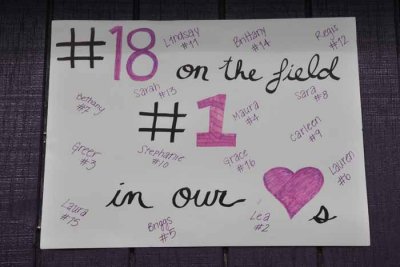 #18 on the field
#1
in our ♥s
Lindsay #11
Brittany #14
Regis #12
Bethany #2
Sarah #13
Maura #4
Sara #8
Carleen #9
Greer #3
Stephanie #10
Grace #16
Lauren #6
Laura #15
Briggs #5
Lea #2